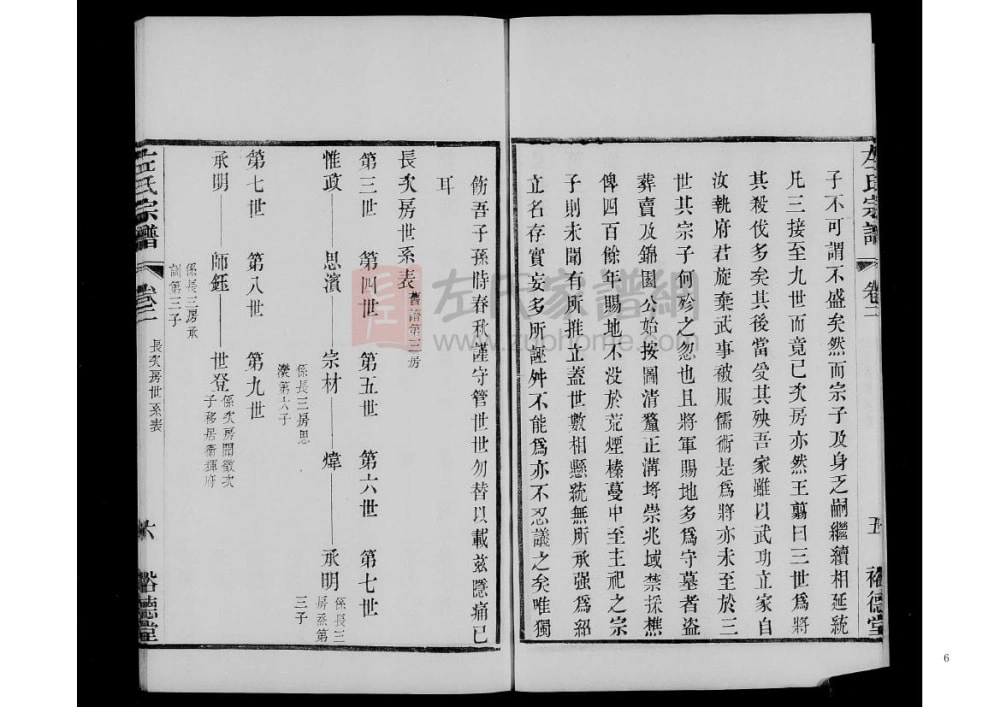 左氏宗譜 卷二 五 裕德堂
子不可謂不盛矣然而宗子及身之嗣繼續相延統
凡三接至九世而竟已矣次房亦然王翦曰三世爲將
其殺伐多矣其後當受其殃吾家雖以武功立家自
汝執府君旋棄武事被服儒術是爲將亦未至於三
世其宗子何殄之忽也且將軍賜地多爲守墓者盜
葬賣及錦園公始按圖清釐正溝埓崇兆域禁採樵
俾四百餘年賜地不没於荒煙榛蔓中至主祀之宗
子則未聞有所推立蓋世數相懸統無所承强爲紹
立名存實妄多所誣舛不能爲亦不忍議之矣唯獨
飭吾子孫時春秋謹守管世世勿替以載兹隱痛已
耳
長次房世系表 舊譜第三房
第三世 第四世 第五世 第六世 第七世
惟政 思濱 宗材 係長三房思濼第六子 煒 承明 係長三房烝第三子
第七世 第八世 第九世
承明 師鈺 係長三房承訓第三子 世登 係次房開徵次子移居衞輝府
左氏宗譜 卷二 長次房世系表 六 裕德堂
左氏家譜網
www.zuohome.com
6